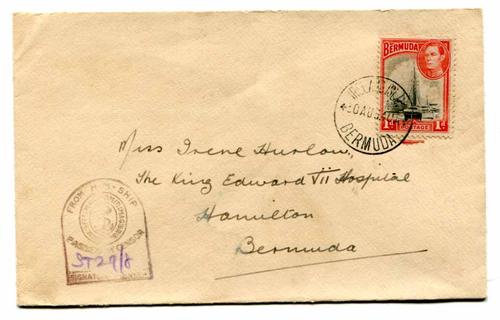 BERMUDA
1d POSTAGE 1d
BERMUDA
Miss Irene Hurlow,
The King Edward VII Hospital
Hamilton
Bermuda
FROM H.M. SHIP
PASSED CENSOR
ST 29/8